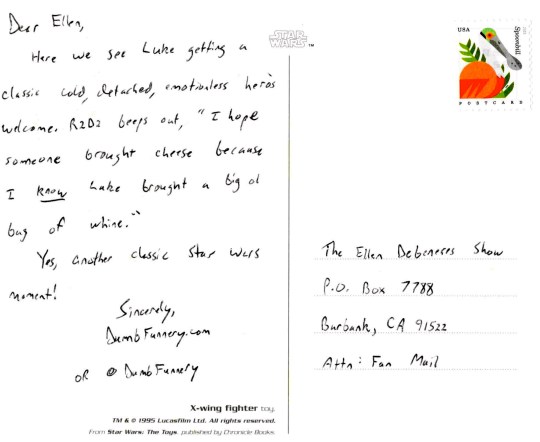 Dear Ellen,
Here we see Luke getting a
classic cold, detached, emotionless hero's
welcome. R2D2 beeps out, "I hope
someone brought cheese because
I know Luke brought a big ol
bag of whine."
Yes, another classic Star Wars
moment!
Sincerely,
DumbFunnery.com
or @DumbFunnery
STAR
WARS™
X-wing fighter toy.
TM & © 1995 Lucasfilm Ltd. All rights reserved.
From Star Wars: The Toys, published by Chronicle Books.
USA
Spoonbill
POSTCARD
The Ellen Degeneres Show
P.O. Box 7788
Burbank, CA 91522
Attn: Fan Mail